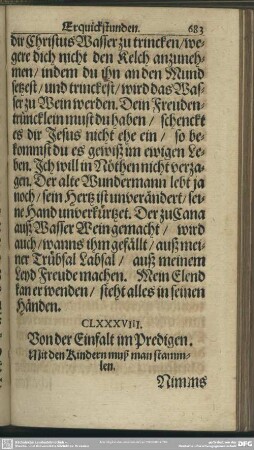 Erquickstunden. 683
dir Christus Wasser zu trincken/ we-
gere dich nicht den Kelch anzuneh-
men/ indem du ihn an den Mund
setzest/ und trinckest/ wird das Was-
ser zu Wein werden. Dein Freuden-
trüncklein must du haben/ schenckt
es dir Jesus nicht ehe ein/ so be-
kommst du es gewiß im ewigen Le-
ben. Ich will in Nöthen nicht verza-
gen. Der alte Wundermann lebt ja
noch/ sein Hertz ist unverändert/ sei-
ne Hand unverkürtzet. Der zu Cana
auß Wasser Wein gemacht/ wird
auch/ wanns ihm gefällt/ auß mei-
ner Trübsal Labsal/ auß meinem
Leyd Freude machen. Mein Elend
kan er wenden/ steht alles in seinen
Händen.
CLXXXVIII.
Von der Einfalt im Predigen.
Mit den Kindern muß man stamm-
len.
Nimms